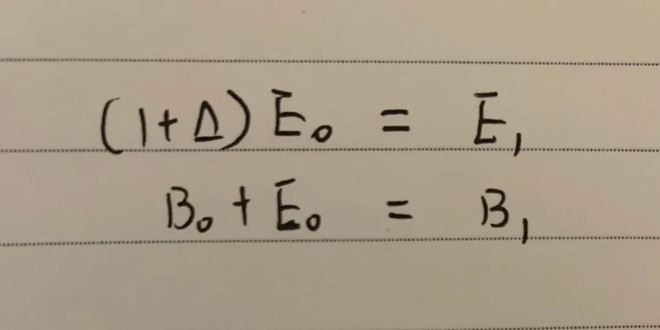 (1+Δ) E₀ = E₁
B₀ + E₀ = B₁